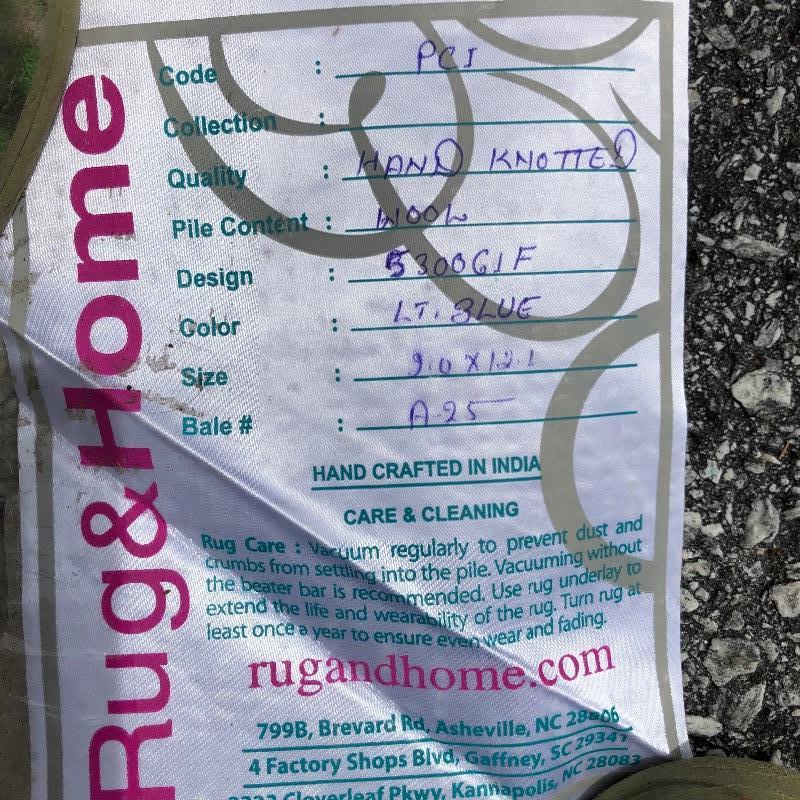 Rug&Home
Code : PCI
Collection :
Quality : HAND KNOTTED
Pile Content : WOOL
Design : 5300G1F
Color : LT. BLUE
Size : 9.0 X 12.1
Bale # : A-25
HAND CRAFTED IN INDIA
CARE & CLEANING
Rug Care : Vacuum regularly to prevent dust and
crumbs from settling into the pile. Vacuuming without
the beater bar is recommended. Use rug underlay to
extend the life and wearability of the rug. Turn rug at
least once a year to ensure even wear and fading.
rugandhome.com
799B, Brevard Rd, Asheville, NC 28806
4 Factory Shops Blvd, Gaffney, SC 29347
Cloverleaf Pkwy, Kannapolis, NC 28083